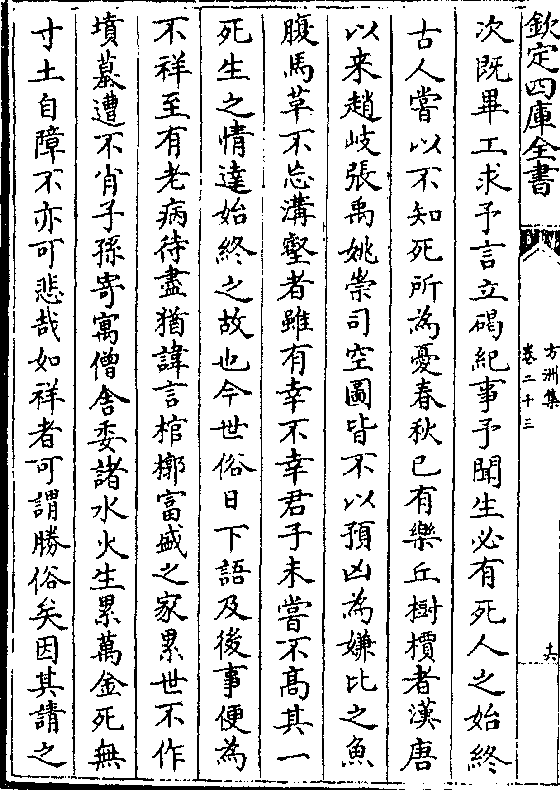 欽定四庫全書
方洲集
卷二十三
六
次既畢工求予言立碣紀事予聞生必有死人之始終
古人嘗以不知死所為憂春秋已有樂丘樹檟者漢唐
以来趙岐張禹姚崇司空圖皆不以預凶為嫌比之魚
腹馬革不忘溝壑者雖有幸不幸君子未嘗不髙其一
死生之情達始終之故也今世俗日下語及後事便為
不祥至有老病待盡猶諱言棺槨富盛之家累世不作
墳墓遭不肖子孫寄寓僧舍委諸水火生累萬金死無
寸土自障不亦可悲哉如祥者可謂勝俗矣因其請之